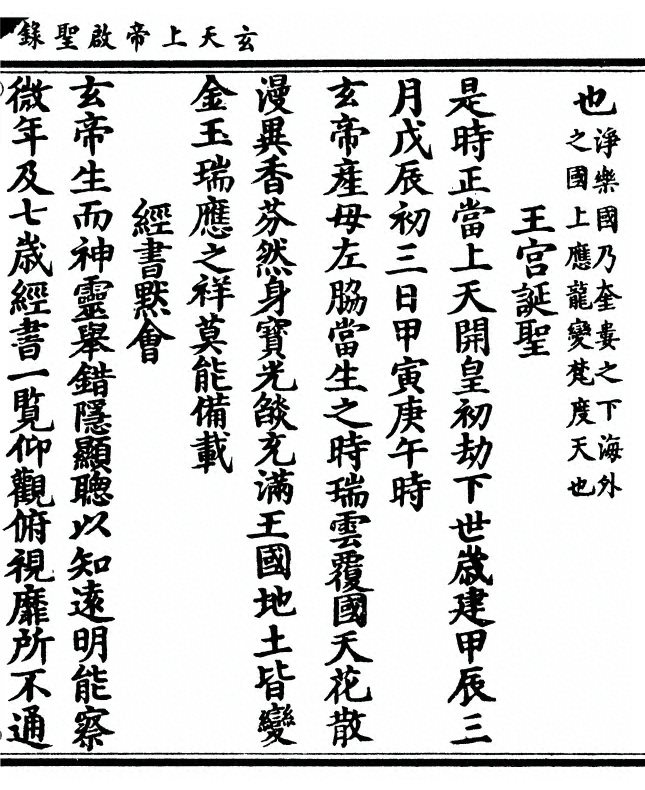 玄天上帝啟聖錄
也淨樂國乃奎婁之下海外
之國上應龍變梵度天也
王宮誕聖
是時正當上天開皇初劫下世歲建甲辰三
月戊辰初三日甲寅庚午時
玄帝產母左脇當生之時瑞雲覆國天花散
漫異香芬然身寶光燄充滿王國地土皆變
金玉瑞應之祥莫能備載
經書默會
玄帝生而神靈舉錯隱顯聰以知遠明能察
微年及七歲經書一覽仰觀俯視靡所不通